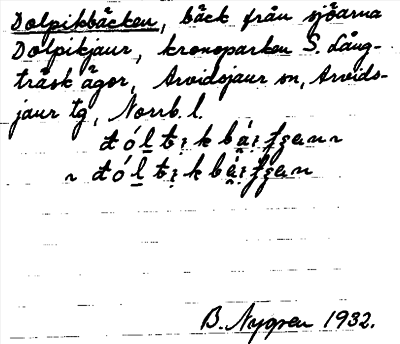 Dolpikbäcken, bäck från sjöarna
Dolpikjaur, kronoparken S. Lång-
träsk ägor, Arvidsjaur sn, Arvids-
jaur tg, Norrb. l.
B. Nygren 1932.